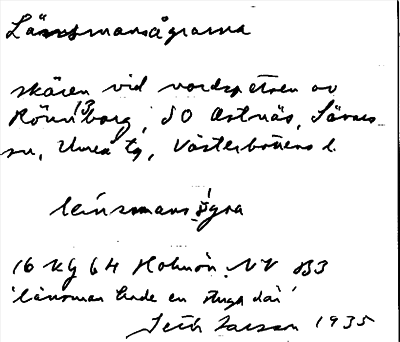 Länsmansågrarna
skären vid nordspetsen av
Rönn 13 borg, SO Ostnäs, Sävars
sn, Umeå tg, Västerbottens l.
länsmans ögra
16 kg 64 Holmön NV B3
'länsman hade en stuga där'
1935